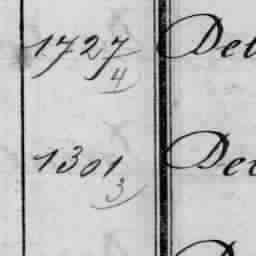 1727 Det
4
1301 De
3